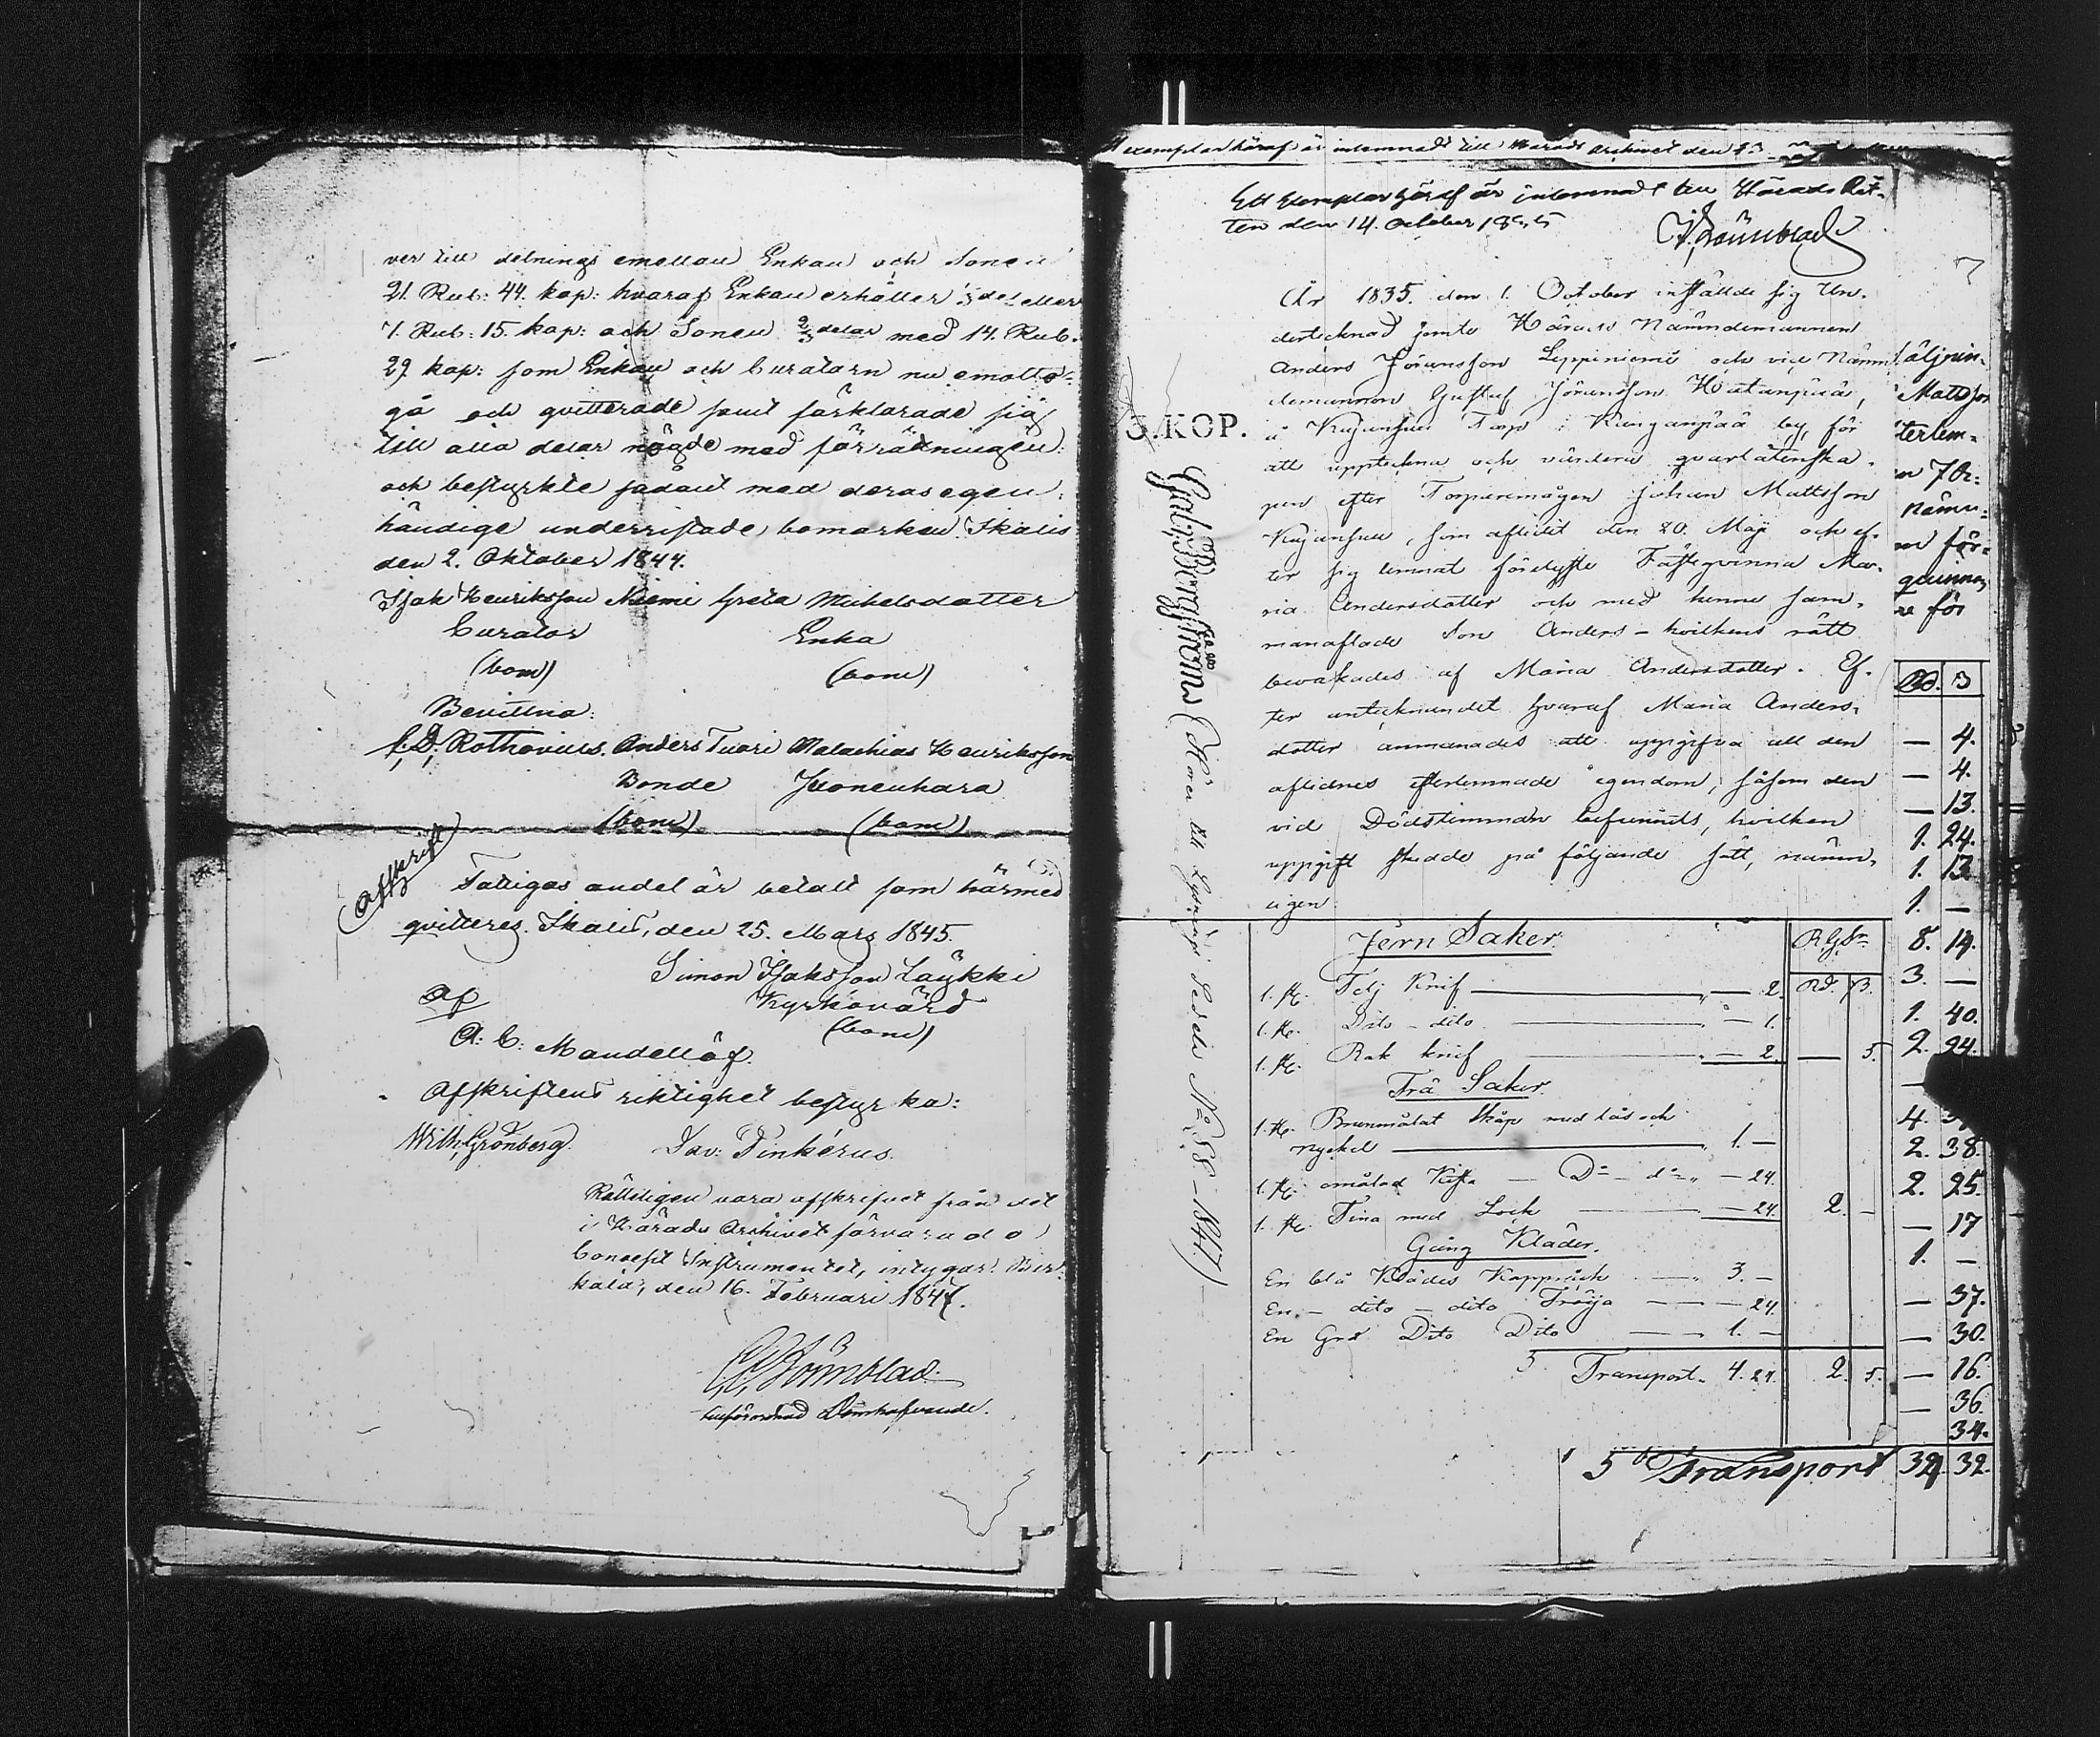 ver till delnings emellan Enkan och Sonen
21. Rub: 44. kop: hvaraf Enkan erhåller 1/3 del eller
7. Rub: 15. kop: och Sonen 2/3 delar med 14. Rub.
29 kop: som Enkan och Curatorn nu emotto-
go och qvitterade samt förklarade sig
till alla delar nögde med förrättningen:
och bestyrkte sådant med deras egen-
händige underristade bomärken. Ikalis
den 2. Oktober 1844.
Isak Henriksson Niemi Greta Michelsdotter
Curator Enka
(bom) (bom)
Bevittna:
C. D. Rothovius. Anders Tuori Malachias Henriksson
Bonde
(bom) (bom)
Afskrift
Fattigas andel är betalt som härmed
qvitteras. Ikalis, den 25. Mars 1845.
Simon Isaksson Läykki
Kyrkovärd
(bom)
A. C. Mandellöf.
Afskriftens riktighet bestyrka:
Wilh. Grönberg. Dav: Dinkérus.
Rätteligen vara afskrifvet från det
i Härads Archivet förvarade
Concept Instrumentet, intygar. Bir-
kala, den 16. Februari 1847.
Domhafvande.
exemplar häraf är inlemnadt till Härads Archivet den 13
Ett Exemplar häraf är inlemnadt till Härads Rät-
ten den 14. October
År 1835. den 1. October inställde sig Un-
dertecknad jemte Härads Nämndemannen
Anders Jöransson Leppiniemi och vice Nämn-
demannen Gustaf Jöransson Hatanpää,
å Kujansuu Torp i Kurganpää by, för
att uppteckna och värdera qvarlåtenska-
pen efter Torparemågen Johan Mattsson
Kujansuu, som aflidit den 20. Maji och ef-
ter sig lemnat förelyste Fästeqvinna Ma-
ria Andersdotter och med henne sam-
manaflade Son Anders – hvilkens rätt
bevakades af Maria Andersdotter. Ef-
ter antecknandet hvaraf Maria Anders-
dotter anmanades att uppgifva all den
aflidnes efterlemnade egendom, såsom den
vid Dödstimman befunnits, hvilken
uppgift skedde på följande sätt, näm-
ligen:
3. KOP.
N:o 88 – 1847)
Jern Saker. RgSr
Rd. ß.
1. st. Telj Knif — 2.
1. st. Dito – dito — 1.
1. st. Rak knif — 2. — 5.
Trä Saker.
1. st. Brunmålat Skåp med lås och
nyckel 1. —
1. st. omålad Kista — D:o – d:o — 24.
1. st. Tina med Lock — 24. 2. —
Gång Kläder.
En blå Klädes Kapprock — 3. —
En – dito – dito Tröija — 24.
En Grå Dito Dito — 1. —
Transport. 4. 24. 2. 5.
äljnin-
Mattsson
terlem-
nämn-
för-
qvinna
för
Rd. ß
— 4.
— 4.
— 13.
1. 24.
1. 13.
1. —
8. 14.
3. —
1. 40.
2. 24.
4.
2. 38.
2. 25.
— 17
1. —
— 37.
— 30.
— 16.
— 36.
34.
Transport 32. 32.